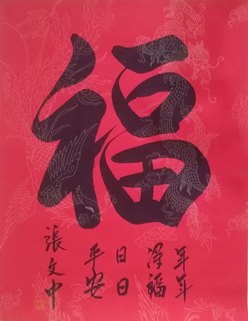 福
年年
得福
日日
平安
張文中